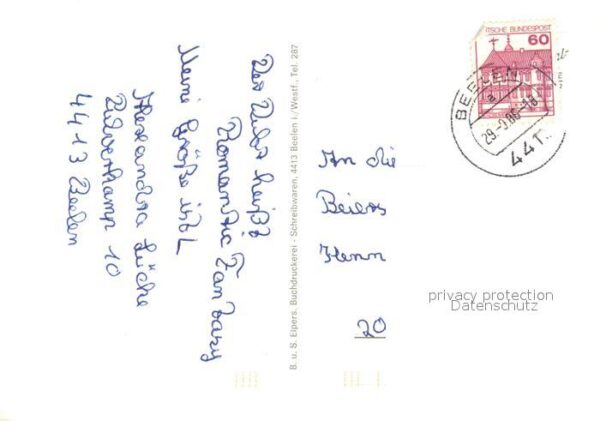 Der Duft heißt
Romantic Fantasy
Meine Größe ist L
Alexandra Lücke
4413 Beelen
B. u. S. Elpers, Buchdruckerei - Schreibwaren, 4413 Beelen i./Westf., Tel. 287
DEUTSCHE BUNDESPOST
60
BEELEN
a
441
An die
Beiers
Henn
20
privacy protection
Datenschutz